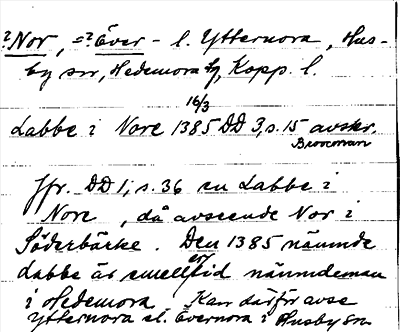 ?Nor, =? Över- l. Ytternora, Hus-
by sn, Hedemora tg, Kopp. l.
16/3
Labbe i Nore 1385 DD 3, s. 15 avskr.
Brooman
Jfr. DD 1, s. 36 en Labbe i
Nore, då avseende Nor i
Söderbärke. Den 1385 nämnde
Labbe är emellertid nämndeman
i Hedemora. Kan därför avse
Ytternora el. Övernora i Husby sn.